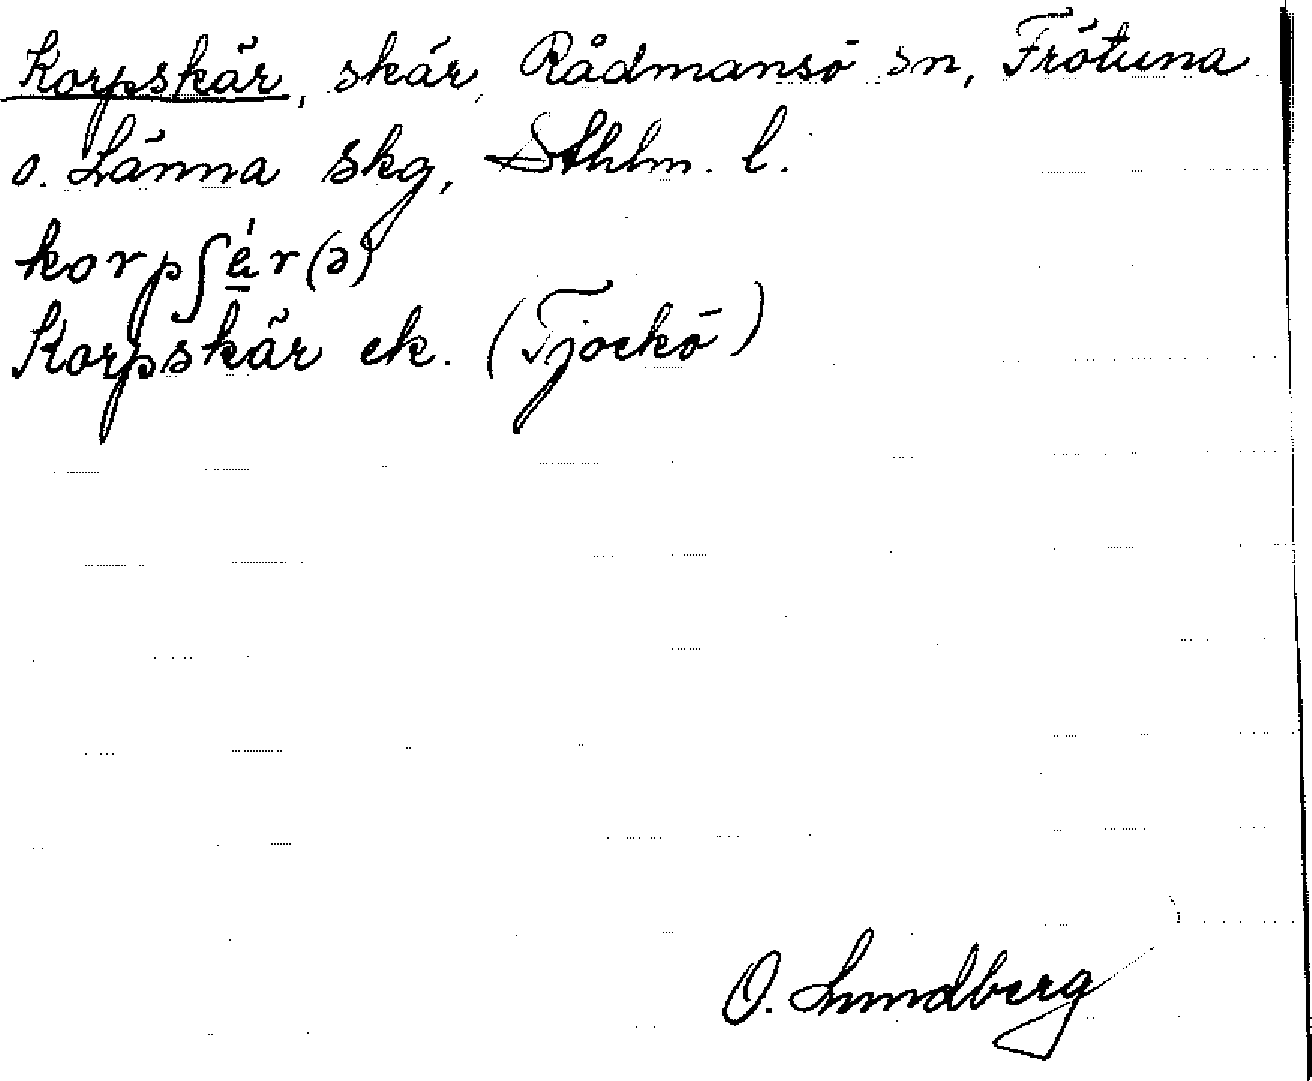 Korpskär, skär, Rådmansö sn, Frötuna
o. Länna skg, Sthlm. l.
korpʃé̱r(ə)
Korpskär ek. (Tjockö)
O. Lundberg